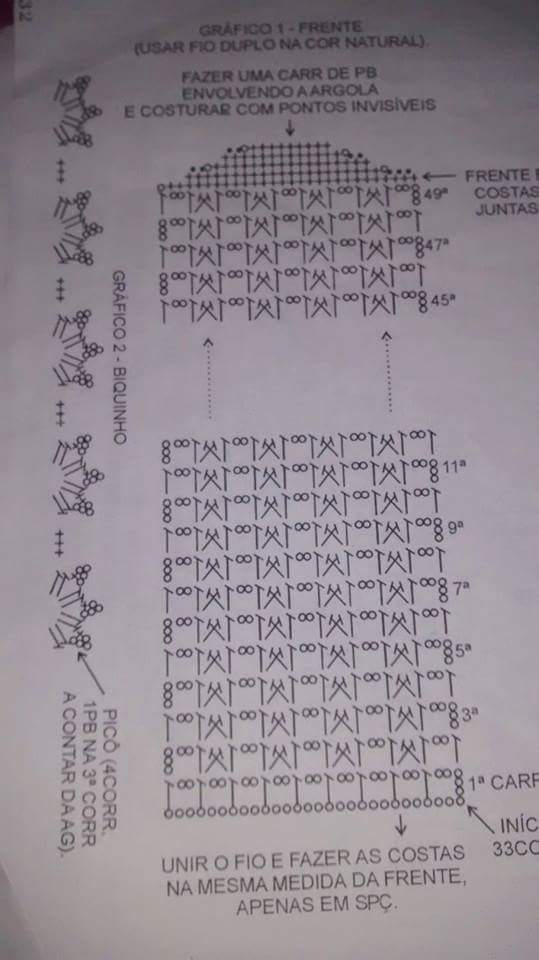 32
GRÁFICO 1 - FRENTE
(USAR FIO DUPLO NA COR NATURAL).
FAZER UMA CARR DE PB
ENVOLVENDO A ARGOLA
E COSTURAR COM PONTOS INVISÍVEIS
FRENTE
COSTAS
JUNTAS
49ª
47ª
45ª
11ª
9ª
7ª
5ª
3ª
1ª CARR
INÍC
33CO
UNIR O FIO E FAZER AS COSTAS
NA MESMA MEDIDA DA FRENTE,
APENAS EM SPÇ.
GRÁFICO 2 - BIQUINHO
PICÔ (4CORR.
1PB NA 3ª CORR
A CONTAR DA AG).